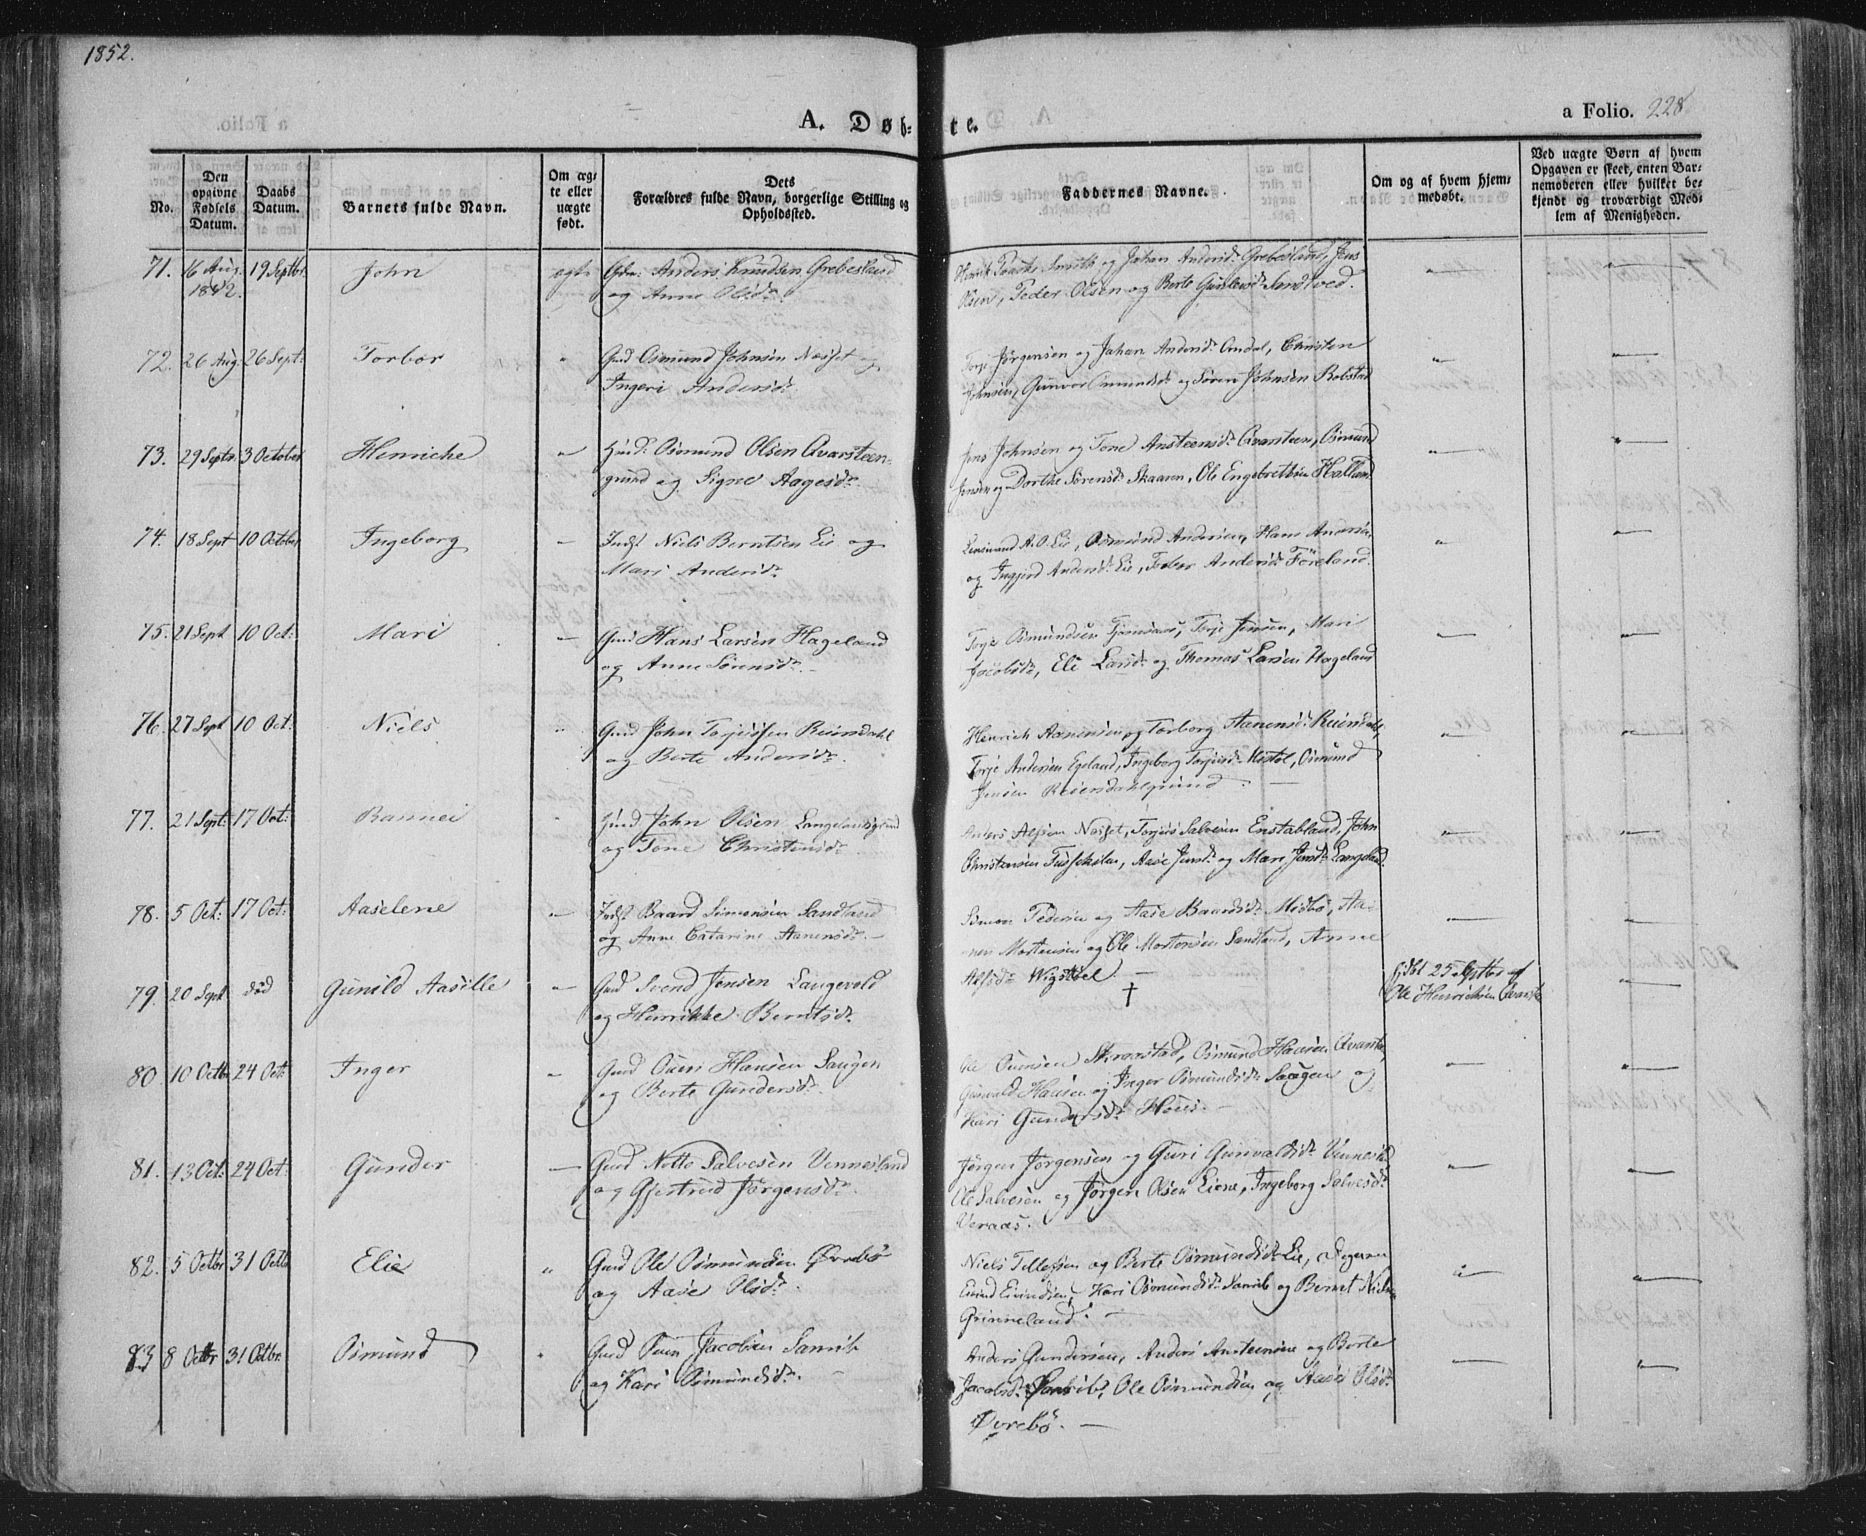 1852.
A. Døb-
te.
a Folio. 228
No.
Den opgivne Fødsels Datum.
Daabs Datum.
Barnets fulde Navn.
Om ægte eller uægte født.
Dets Forældres fulde Navn, borgerlige Stilling og Opholdssted.
Faddernes Navne.
Om og af hvem hjemmedøbt.
Ved uægte Børn af hvem Opgaven er skeet, enten Barnemoderen eller hvilket bekjendt og troværdigt Medlem af Menigheden.
71. 16 Aug. 19 Septbr. John ægte Anders Knudsen Grebesland
1852. og Anne Olsdr.
Smith og Johan Andersdr. Grebesland, Jens
Olsen, Peder Olsen og Berte
72. 26 Aug. 26 Sept: Torbor " Gmd Osmund Johnsen Næsset og
Ingeri Andersdr.
Torje Jørgensen og Johan Andersdr. Omdal, Christen "
Johnsen, Gunvor Osmundsdr. og Søren Johnsen Robstad
73. 29 Septr. 3 October Henriche — Osmund Olsen Qvarsteen-
grund og Signe Aagesdr.
Jens Johnsen og Tone Ansteensdr. Qvarsteen, Osmund
Jensen og Dorthe Sørensdr. Skaaren, Ole Engebretsen Halland
74. 18 Sept 10 October Ingeborg — Indst Niels Berntsen Lie og
Mari Andersdr.
A. O. Lie, Osmund Andersen, Hans Andersen
og Ingjerd Andersdr. Lie, Torbor Andersdr. Föreland.
75. 21 Sept 10 Oct: Mari — Gmd Hans Larsen Hageland
og Anne Sørensdr. —
Torje Osmundsen Torje Jensen, Mari
Jacobsdr., Eli Larsdr. og Thomas Larsen Hageland
76. 27 Sept 10 Oct: Niels " Gmd John Torjussen Reiersdahl
og Berte Andersdr.
Henrich Aanensen og Torborg Aanensdr. Reiersdal,
Torje Andersen Egeland, Ingeborg Torjusdr. Mestøl, Osmund
Jensen Reiersdahlgrund. —
77. 21 Sept: 17 Oct: Rannei " John Olsen
og Tone Christensdr.
Anders Alfsen Næsset, Torjus Salvesen Enstabland, John
Christensen Aase Jensdr. og Mari Jensdr. Langeland
78. 5 Oct: 17 Oct: Aaselene — Indst Baard Simonsen Sandland
og Anne Catarine Aanensdr. —
Simon Pedersen og Aase Baardsdr. Medbø, Aa-
nen Mortensen og Ole Mortensen Sandland, Anne
Alfsdr. Wigstøl —
79. 20 Sept død Gunild Aasille — Gmd Svend Jensen Langevold
og Henrikke Berntsdr.
†
hjdbt 25 Septbr af
Ole Henriksen
80 10 Octbr 24 Oct: Inger — Gmd Ouen Hansen Saugen
og Berte Gundersdr.
Ole Ouensen Skraastad, Osmund Hansen
Gunvald Hansen og Inger Osmundsdr. Saagen og
Kari Gundersdr. —
81. 13 Oct: 24 Oct: Gunder — Gmd Notto Salvesen Vennesland
og Gjertrud Jørgensdr.
Jörgen Jørgensen og Guri Gunvaldsdr.
Ole Salvesen og Jörgen Olsen Eiene, Ingeborg Salvesdr.
Veraas.
82. 5 Octbr 31 Octb Elie " Gmd Ole Osmundsen Øvrebö
og Aase Olsdr.
Niels Tellefsen og Berte Osmundsdr. Lie,
Eivind Eivindsen, Kari Osmundsdr. og Bernt
Grinneland. —
83 8 Octbr 31 Octbr. Osmund Gmd Ouen Jacobsen
og Kari Osmundsdr. —
Anders Gundersen, Anders Ansteensen og Berte
Jacobsdr. Ole Osmundsen og Aase Olsdr.
Øvrebö. —